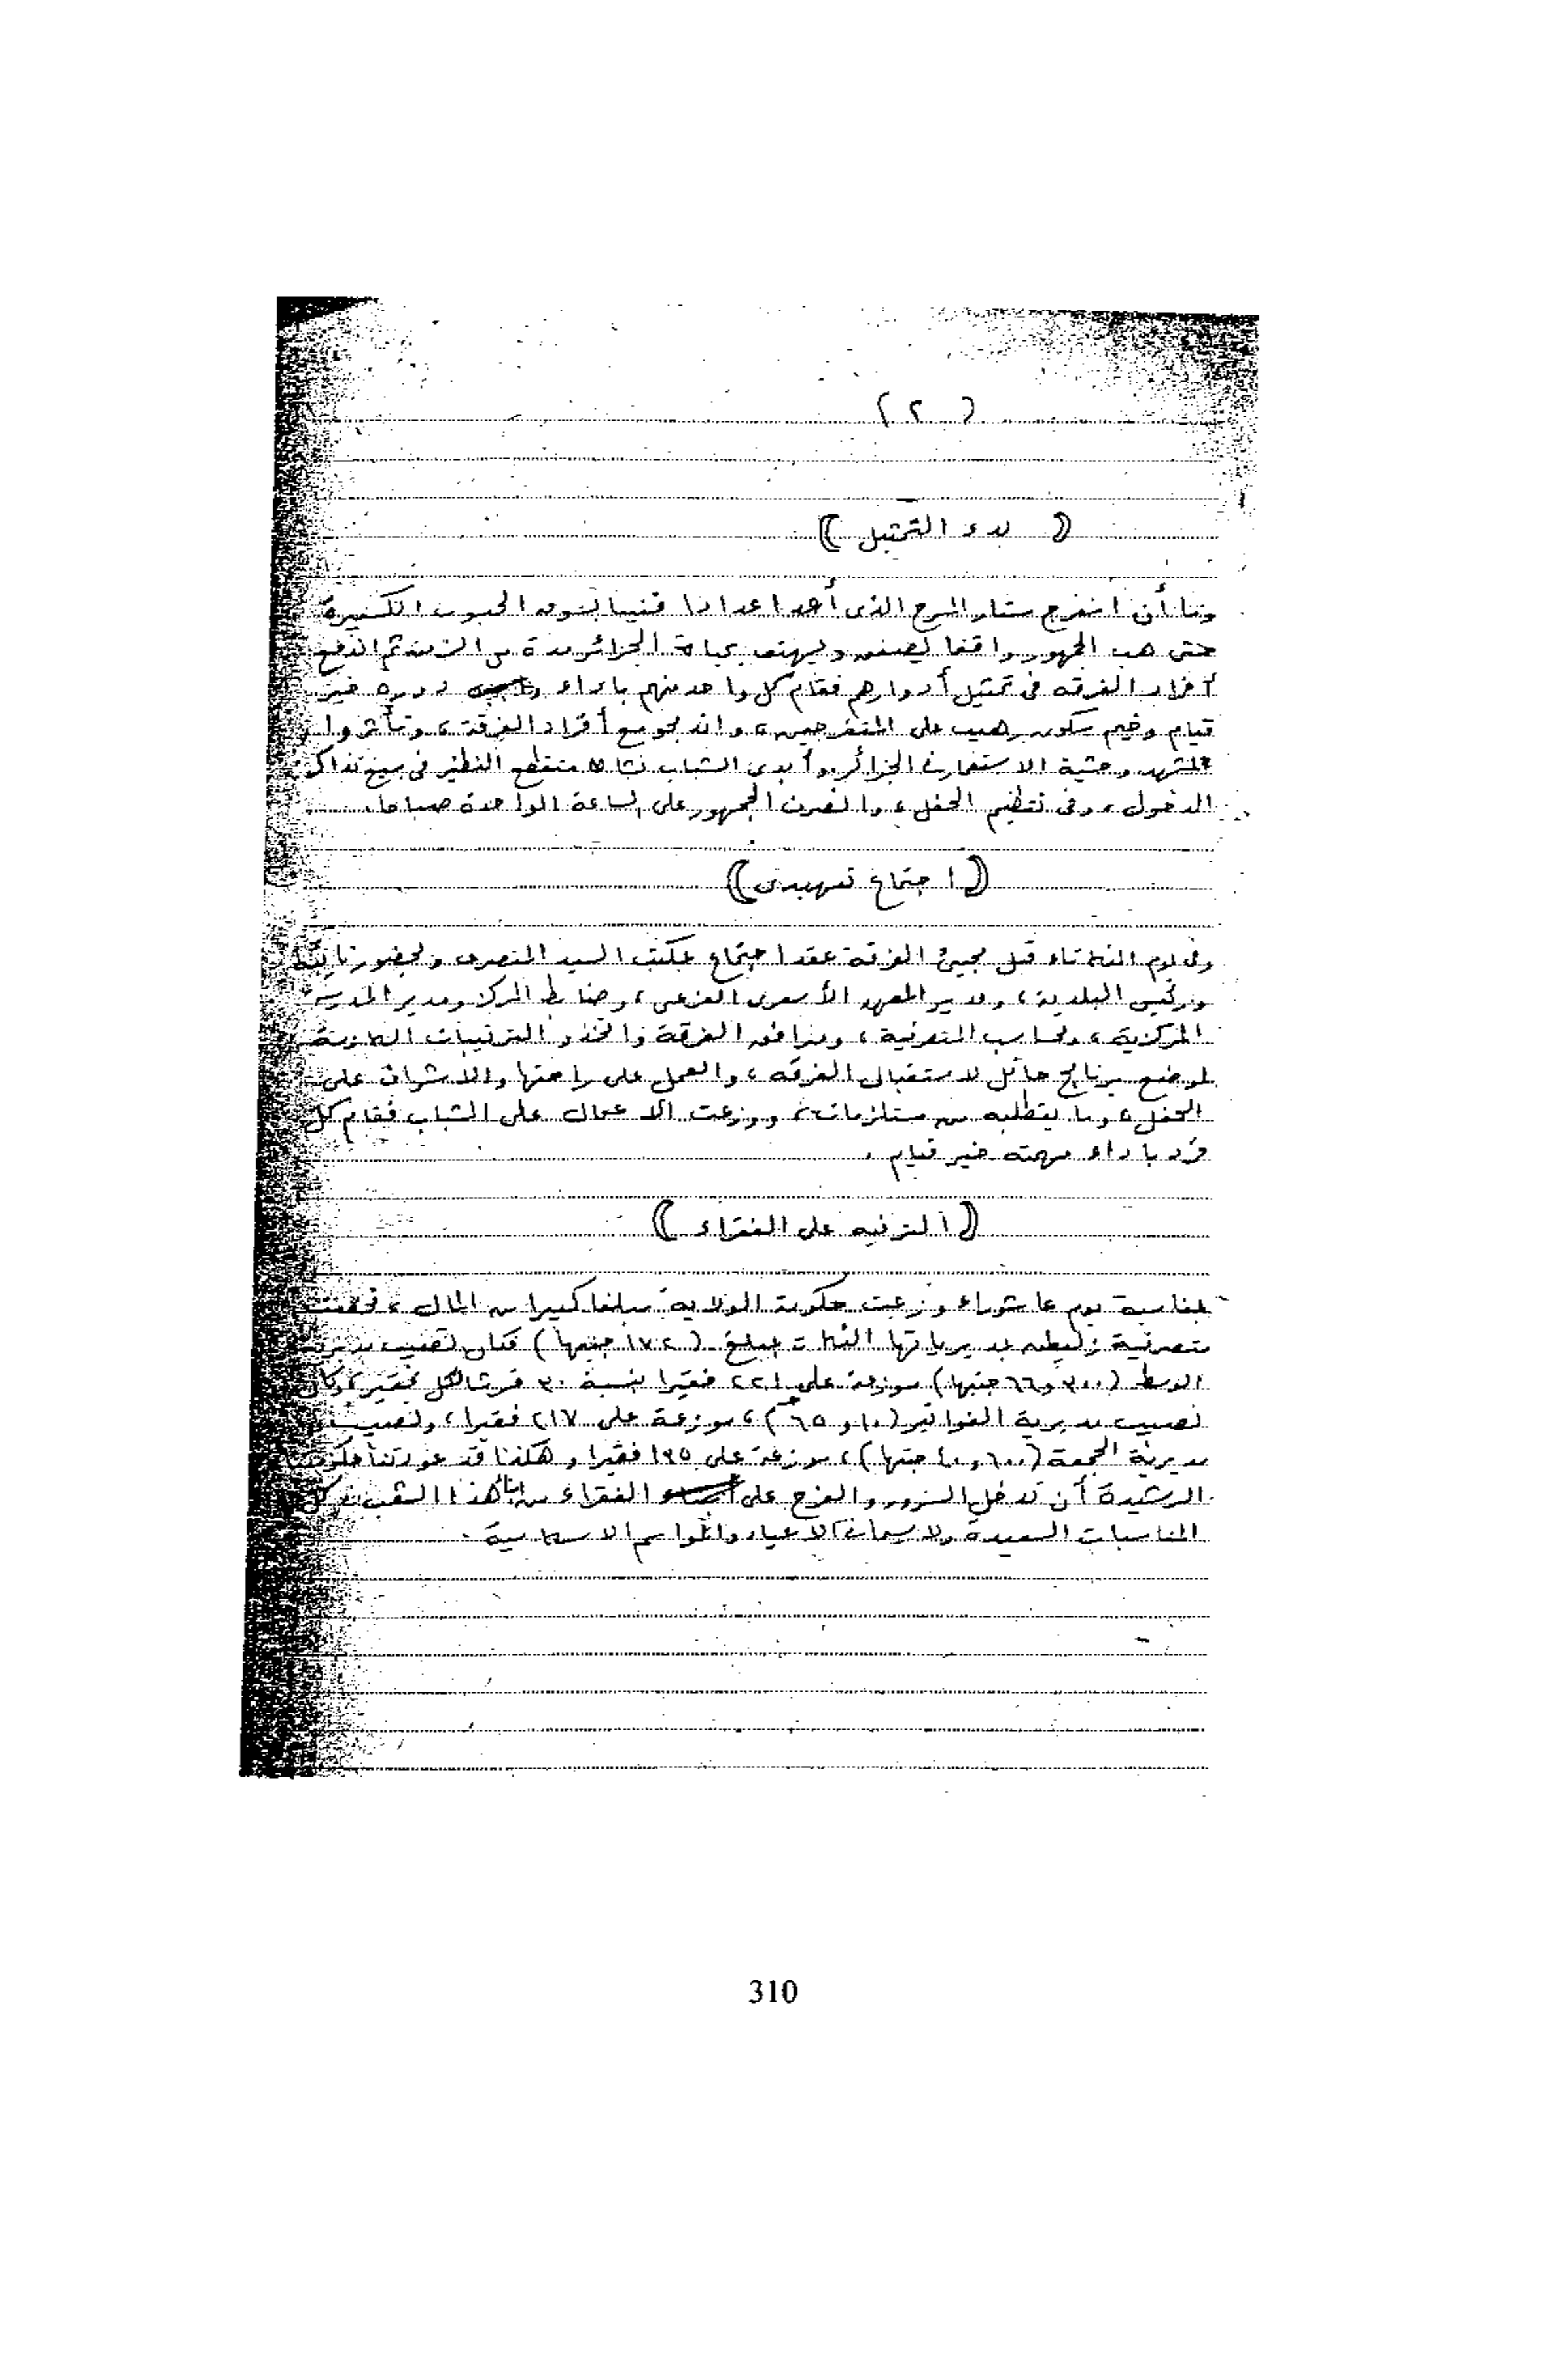 ( ٢ )
(( بدء التمثيل ))
وما أن انفرج ستار المسرح الذى أعد اعدادا فنيا بسوق الحبوب الكبيرة
حتى هب الجمهور واقفا يصفق ويهتف بحياة الجزائر مدة من الزمن ثم اندفع
أفراد الفرقه فى تمثيل أدوارهم فقام كل واحد منهم باداء دوره خير
قيام وخيم سكون رهيب على المتفرجين، واندمجو مع أفراد الفرقة، وتأثروا
المشهد وحشية الاستعمار فى الجزائر وأبدى الشباب نشاطا منقطع النظير فى بيع تذاكر
الدخول، وفى تنظيم الحفل، وانصرف الجمهور على الساعة الواحدة صباحا.
(( اجتماع تمهيدى ))
وفى يوم الثلاثاء قبل مجيئ الفرقة عقد اجتماع بمكتب السيد المتصرف وبحضور نائبه
ورئيس البلدية، ومدير المعهد الأسمرى الفرعى، وضابط المركز ومدير المدرسة
المركزية، ومحاسب المتصرفية، ومرافق الفرقة واتخذو الترتيبات اللازمة
لوضع برنامج حافل لاستقبال الفرقه، والعمل على راحتها والاشراف على
الحفل، وما يتطلبه من مستلزمات، ووزعت الاعمال على الشباب فقام كل
فرد باداء مهمته خير قيام.
(( الترفيه على الفقراء ))
بمناسبة يوم عاشوراء وزعت حكومة الولاية مبلغا كبيرا من المال، فخصت
متصرفية زليطن بمديرياتها الثلاث بمبلغ (١٧٢ جنيها) فكان نصيب مديرية
الوسط (٣٠٠و٦٦ جنيها) موزعة على ٢٢١ فقيرا بنسبة ٣٠ قرشا لكل فقير، وكان
نصيب مديرية الفواتير (١٠٠و٦٥)، موزعة على ٢١٧ فقيرا، ونصيب
مديرية الجمعة (٦٠٠و٤٠ جنيها)، موزعة على ١٣٥ فقيرا وهكذا قد عودتنا حكومتنا
الرشيدة أن تدخل السرور والفرح على الفقراء من أبناء هذا الشعب فى كل
المناسبات السعيدة ولا سيما فى الاعياد والمواسم الاسلامية.
310